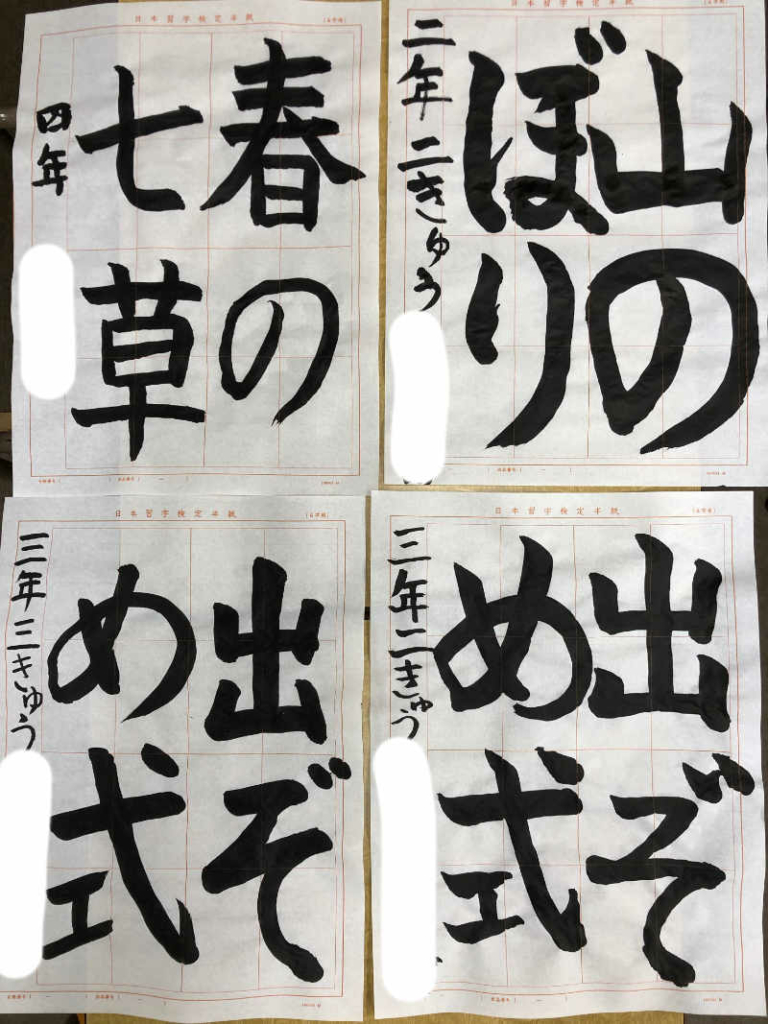 日本習字検定半紙
春の
七草
四年
日本習字検定半紙
山の
ぼり
二年 二きゅう
日本習字検定半紙
出ぞ
め式
三年 三きゅう
日本習字検定半紙
出ぞ
め式
三年 二きゅう